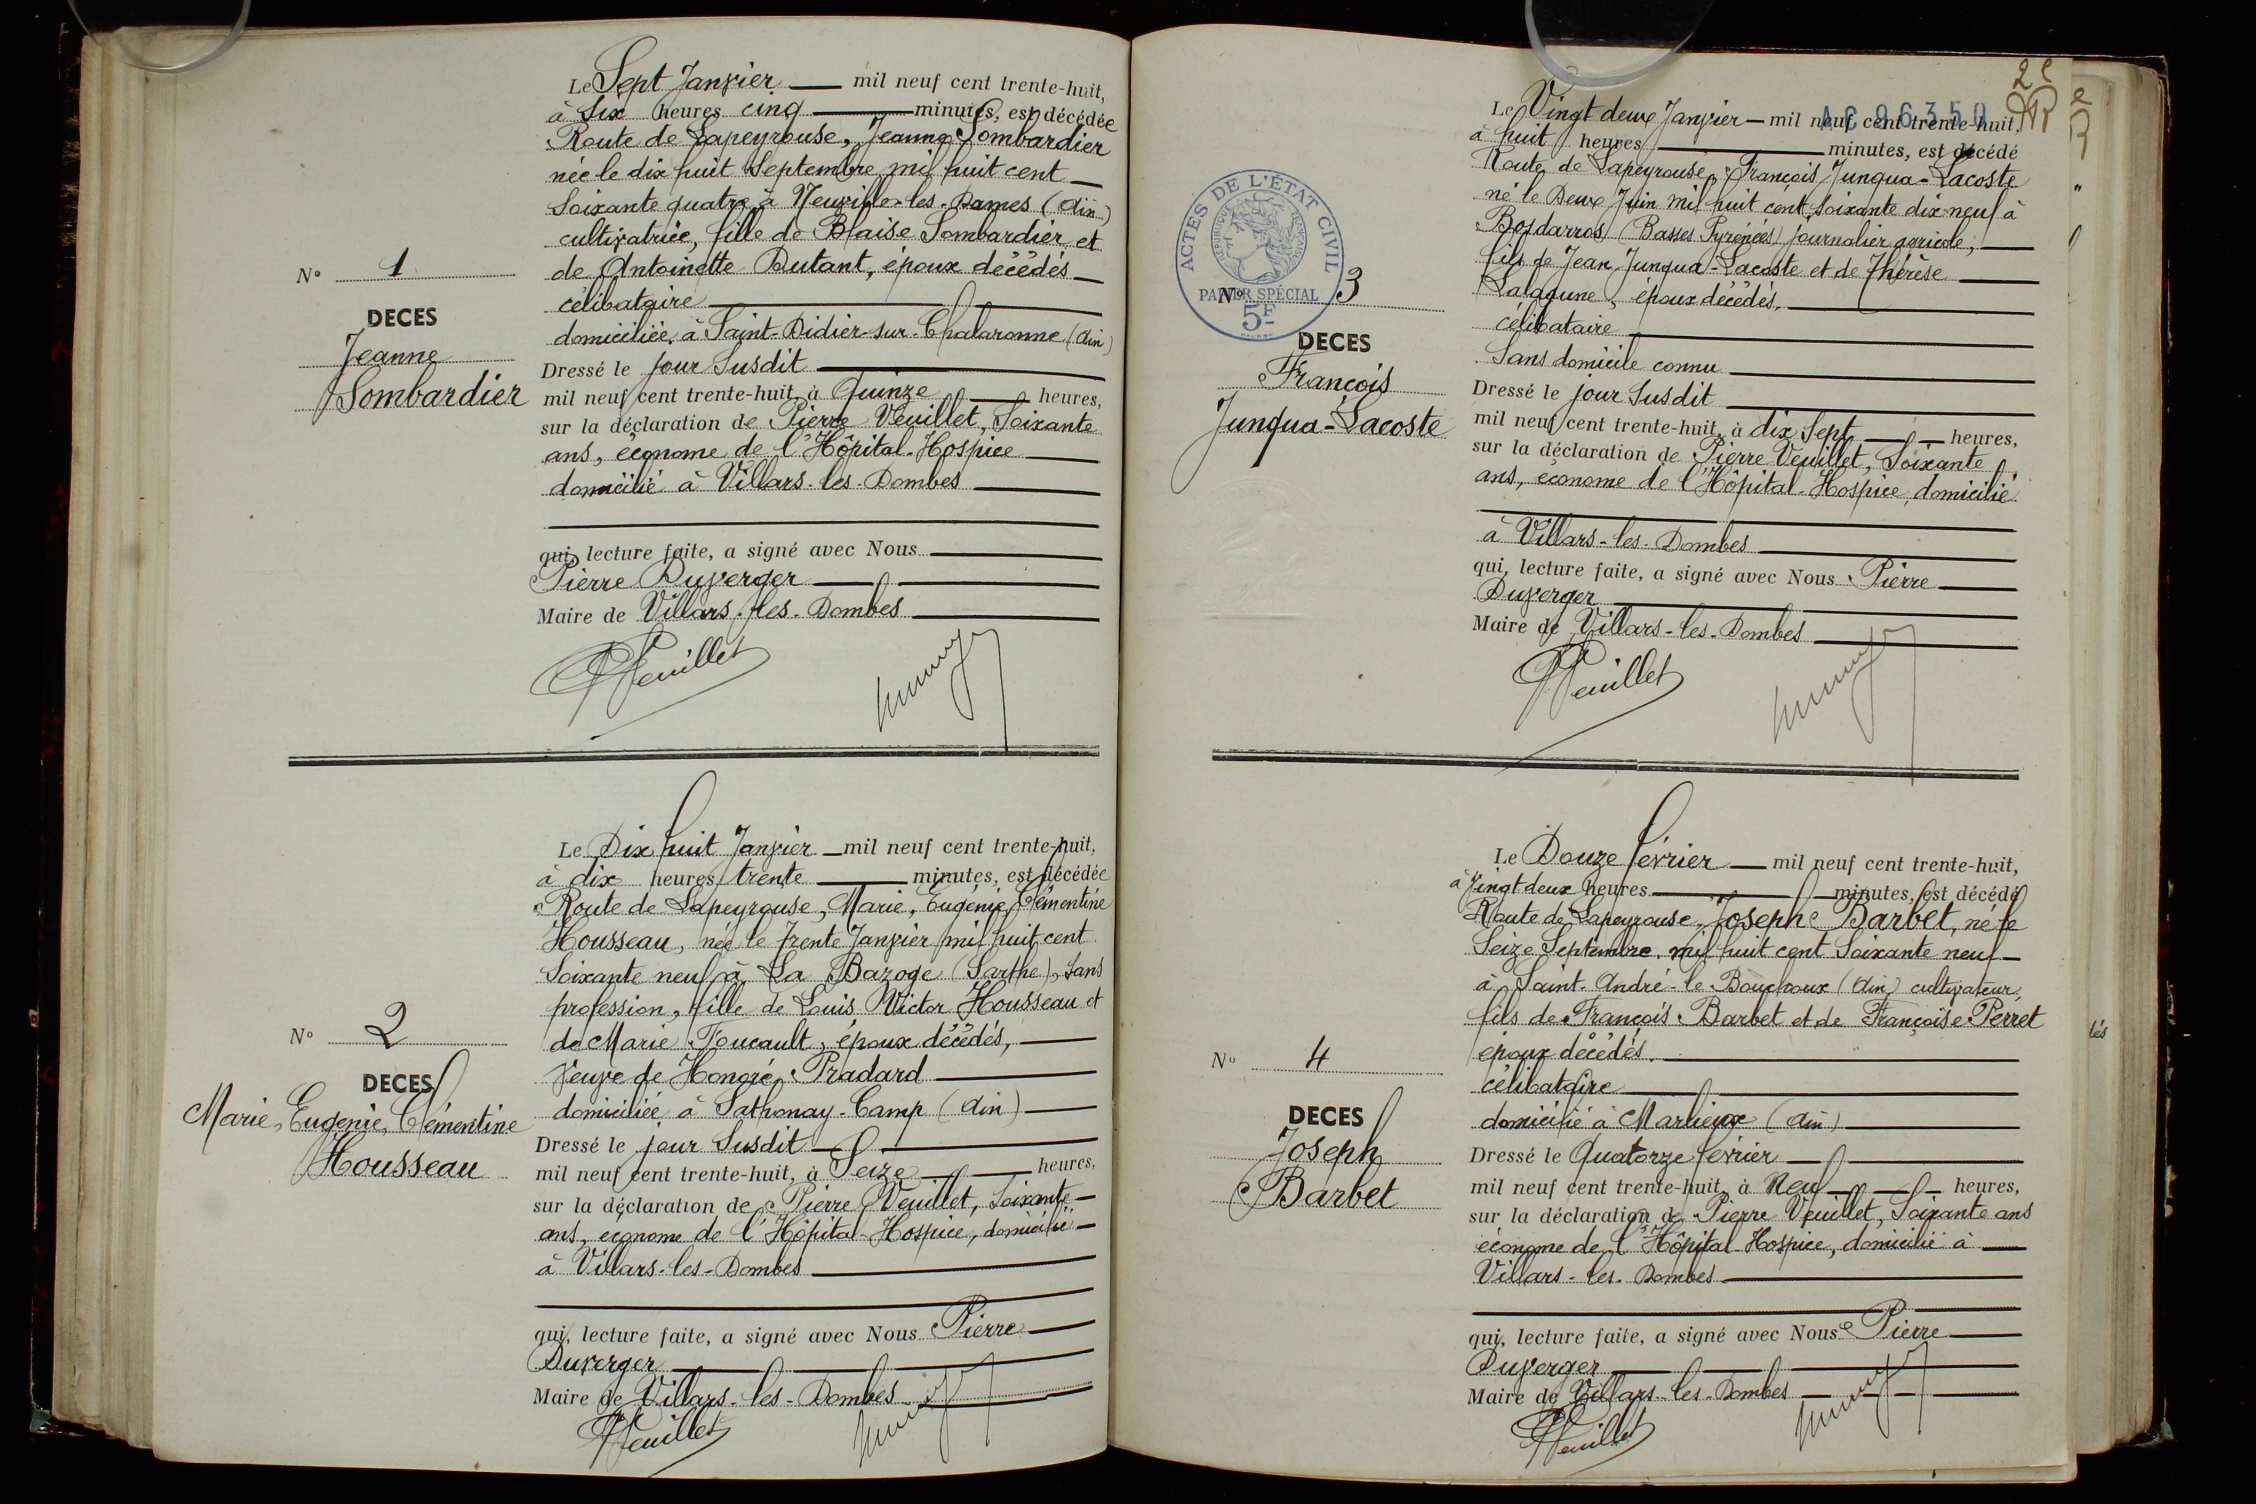 Le Sept Janvier mil neuf cent trente-huit,
à Six heures cinq minutes, est décédée
Route de Lapeyrouse, Jeanne Sombardier
née le dix huit Septembre mil huit cent
Soixante quatre à Neuville-les-Dames (Ain)
cultivatrice, fille de Blaise Sombardier et
de Antoinette Dutant, époux décédés
célibataire
domiciliée à Saint-Didier-sur-Chalaronne (Ain)
Dressé le jour Susdit
mil neuf cent trente-huit, à Quinze heures,
sur la déclaration de Pierre Veuillet, Soixante
ans, économe de l'Hôpital-Hospice
domicilié à Villars-les-Dombes
qui, lecture faite, a signé avec Nous
Pierre Duverger
Maire de Villars-les-Dombes
PVeuillet
N° 1
DECES
Jeanne
Sombardier
Le Dix huit Janvier mil neuf cent trente-huit,
à dix heures trente minutes, est décédée
Route de Lapeyrouse, Marie, Eugénie, Clémentine
Housseau, née le trente Janvier mil huit cent
Soixante neuf à La Bazoge (Sarthe), Sans
profession, fille de Louis Victor Housseau et
de Marie Foucault, époux décédés,
Veuve de Honoré Pradard
domiciliée à Sathonay-Camp (Ain)
Dressé le jour Susdit
mil neuf cent trente-huit, à Seize heures,
sur la déclaration de Pierre Veuillet, Soixante
ans, économe de l'Hôpital-Hospice, domicilié
à Villars-les-Dombes
qui, lecture faite, a signé avec Nous Pierre
Duverger
Maire de Villars-les-Dombes
PVeuillet
N° 2
DECES
Marie, Eugénie, Clémentine
Housseau
2e
AC 96350
ACTES DE L'ÉTAT CIVIL
RÉPUBLIQUE FRANÇAISE
PAPIER SPÉCIAL
5F
Le Vingt deux Janvier mil neuf cent trente-huit,
à huit heures minutes, est décédé
Route de Lapeyrouse, François Junqua-Lacoste
né le Deux Juin mil huit cent soixante dix neuf à
Bosdarros (Basses Pyrénées) journalier agricole,
fils de Jean Junqua-Lacoste et de Thérèse
Lalagune, époux décédés,
célibataire
Sans domicile connu
Dressé le jour Susdit
mil neuf cent trente-huit, à dix Sept heures,
sur la déclaration de Pierre Veuillet, Soixante
ans, économe de l'Hôpital-Hospice, domicilié
à Villars-les-Dombes
qui, lecture faite, a signé avec Nous Pierre
Duverger
Maire de Villars-les-Dombes
PVeuillet
N° 3
DECES
François
Junqua-Lacoste
Le Douze Février mil neuf cent trente-huit,
à Vingt deux heures minutes, est décédé
Route de Lapeyrouse, Joseph Barbet, né le
Seize Septembre mil huit cent Soixante neuf
à Saint-André-le-Bouchoux (Ain) cultivateur,
fils de François Barbet et de Françoise Perret
époux décédés.
célibataire
domicilié à Marlieux (Ain)
Dressé le Quatorze Février
mil neuf cent trente-huit, à Neuf heures,
sur la déclaration de Pierre Veuillet, Soixante ans
économe de l'Hôpital Hospice, domicilié à
Villars-les-Dombes
qui, lecture faite, a signé avec Nous Pierre
Duverger
Maire de Villars-les-Dombes
PVeuillet
N° 4
DECES
Joseph
Barbet
tés